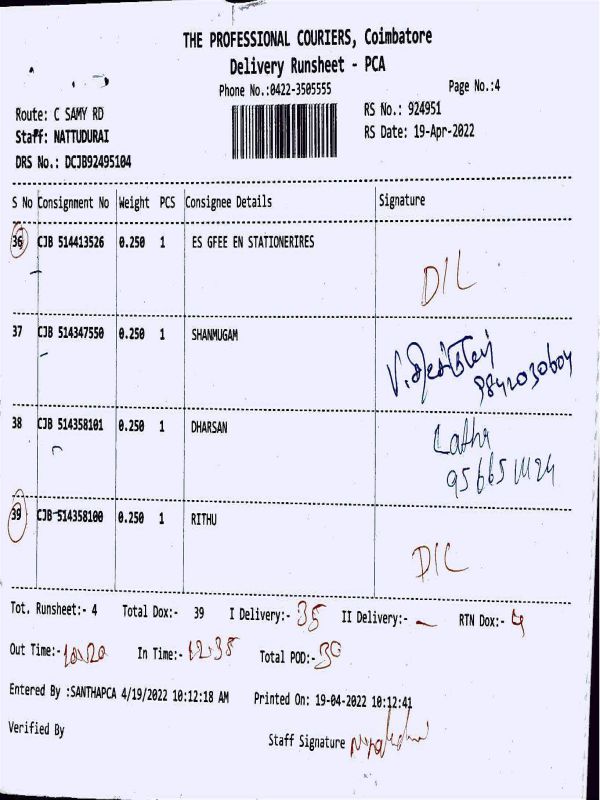 THE PROFESSIONAL COURIERS, Coimbatore
Delivery Runsheet - PCA
Phone No.:0422-3505555
Page No.:4
Route: C SAMY RD
RS No.: 924951
Staff: NATTUDURAI
RS Date: 19-Apr-2022
DRS No.: DCJB92495104
S No Consignment No Weight PCS Consignee Details Signature
36 CJB 514413526 0.250 1 ES GFEE EN STATIONERIRES
D/L
37 CJB 514347550 0.250 1 SHANMUGAM
9842030604
38 CJB 514358101 0.250 1 DHARSAN
Latha
39 CJB 514358100 0.250 1 RITHU
D/L
Tot. Runsheet:- 4 Total Dox:- 39 I Delivery:- 35 II Delivery:- - RTN Dox:- 4
Out Time:- 10:20 In Time:- 12:35 Total POD:- 30
Entered By :SANTHAPCA 4/19/2022 10:12:18 AM Printed On: 19-04-2022 10:12:41
Verified By
Staff Signature